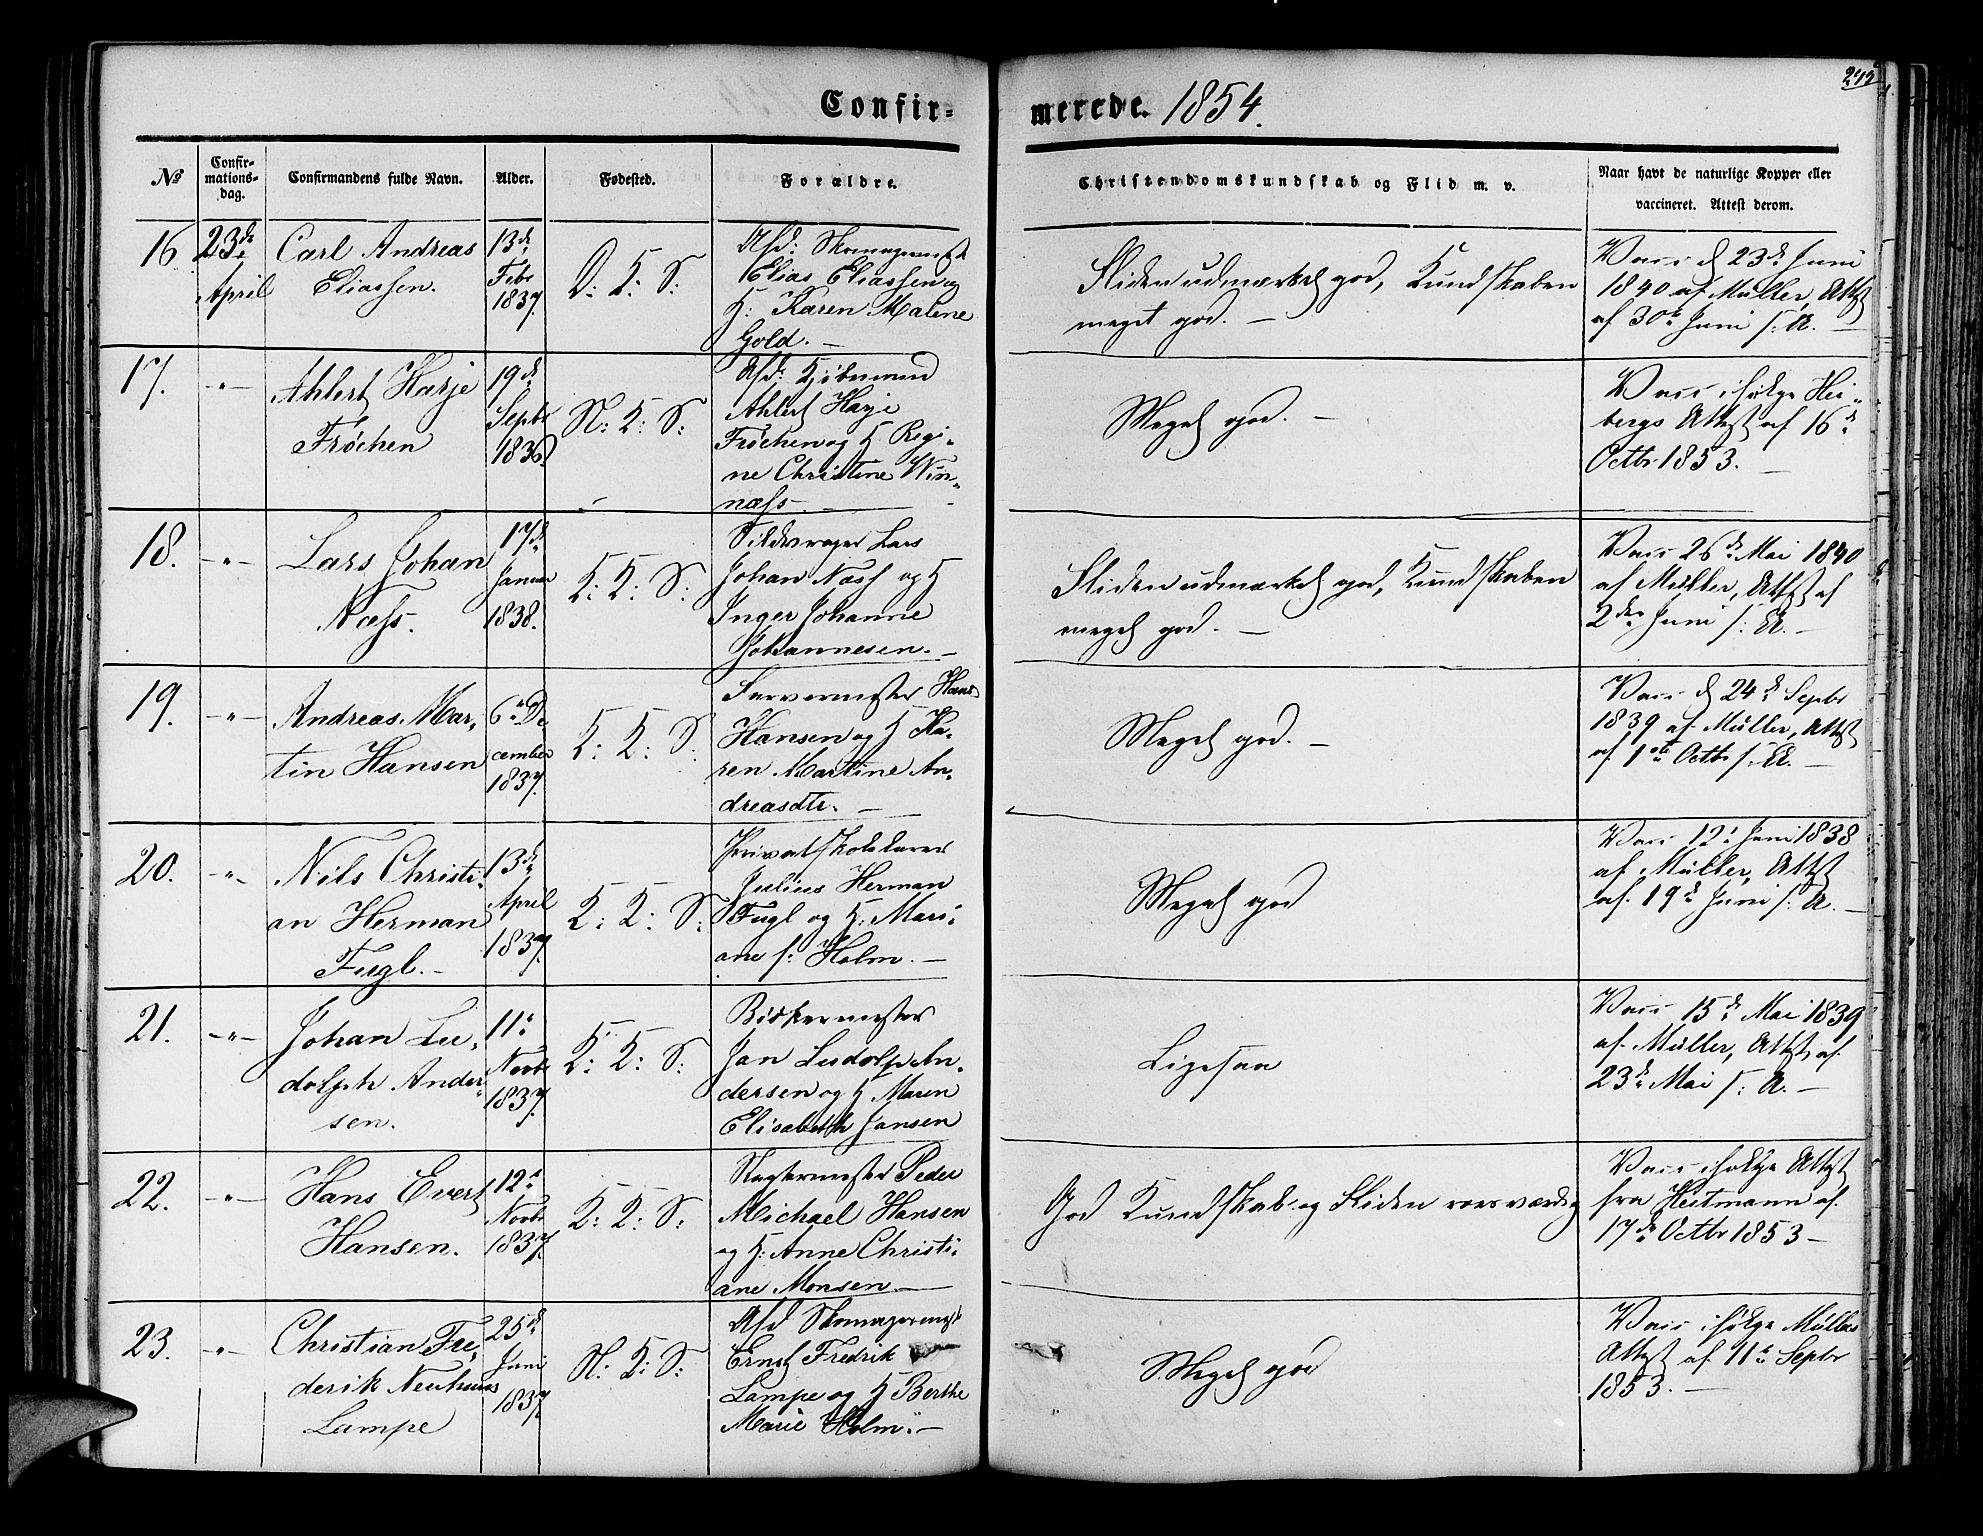 242
Confir-
merede. 1854.
No
Confir-
mations-
dag.
Confirmandens fulde Navn.
Alder.
Fødested.
Forældre.
Christendomskundskab og Flid m. v.
Naar havt de naturlige Kopper eller
vaccineret. Attest derom.
16
23de
April
Carl Andreas
Eliassen.
13de
Febr
1837.
D: K: S:
Afd: Skomagermest
Elias Eliassen og
H: Karen Malene
Gold. —
Fliden udmærket god, Kundskaben
meget god. —
Vacc d 23de Juni
1840 af Müller, Attst
af 30te Juni s: A. —
17.
—"—
Ahlert Harje
Fröchen
19de
Septbr
1836.
N: K: S:
Afd: Kjøbmand
Ahlert Harje
Fröchen og H Regi-
ne Christine Win-
næss. —
Meget god. —
Vacc ifølge Hei-
bergs Attst af 16de
Octbr 1853. —
18.
—"—
Lars Johan
Næss.
17de
Januar
1838.
K: K: S:
Sildevrager Lars
Johan Næss og H
Inger Johanne
Johannesen. —
Fliden udmærket god, Kundskaben
meget god. —
Vacc 26de Mai 1840
af Müller, Attst af
2den Juni s: A. —
19.
—"—
Andreas Mar-
tin Hansen
6te De
cember
1837.
K: K: S:
Farvermester Hans
Hansen og H Ka-
ren Martine An-
dreasdtr. —
Meget god. —
Vacc d 24de Septbr
1839 af Müller, Attst
af 1ste Octbr s: A. —
20.
—"—
Nils Christi-
an Herman
Fugl. —
13de
April
1837.
K: K: S:
Privatskolelærer
Julius Herman
Fugl og H: Mari-
ane f: Holm. —
Meget god
Vacc 12te Juni 1838
af Müller, Attst
af 19de Juni s: A. —
21.
—"—
Johan Lu-
dolph Ander-
sen.
11te
Novbr
1837.
K: K: S:
Bødkermester
Jan Ludolph An-
dersen og H Maren
Elisabeth Jansen
Ligesaa
Vacc 15de Mai 1839
af Müller, Attst af
23de Mai s: A. —
22.
—"—
Hans Evert
Hansen.
12te
Novbr
1837.
K: K: S:
Slagtermester Peder
Michael Hansen
og H: Anne Christi-
ane Monsen —
God Kundskab og Fliden roesværdig
Vacc ifølge Attst
fra Heitmann af
17de Octbr 1853 —
23.
—"—
Christian Fre-
derik Neuhaus
Lampe
25de
Juni
1837.
N: K: S:
Afd Skomagermest
Ernst Fredrik
Lampe og H Berthe
Marie Holm. —
Meget god
Vacc ifølge Müllers
Attst af 11te Septbr
1853. —